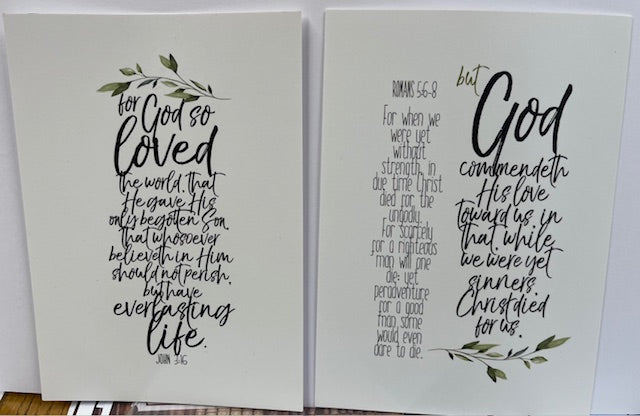 for God so
loved
the world, that
He gave His
only begotten Son,
that whosoever
believeth in Him
should not perish,
but have
everlasting
life.
JOHN 3:16
ROMANS 5:6-8
For when we
were yet
without
strength, in
due time Christ
died for the
ungodly.
For scarcely
for a righteous
man will one
die: yet
peradventure
for a good
man some
would even
dare to die.
but
God
commendeth
His love
toward us, in
that, while
we were yet
sinners,
Christ died
for us.